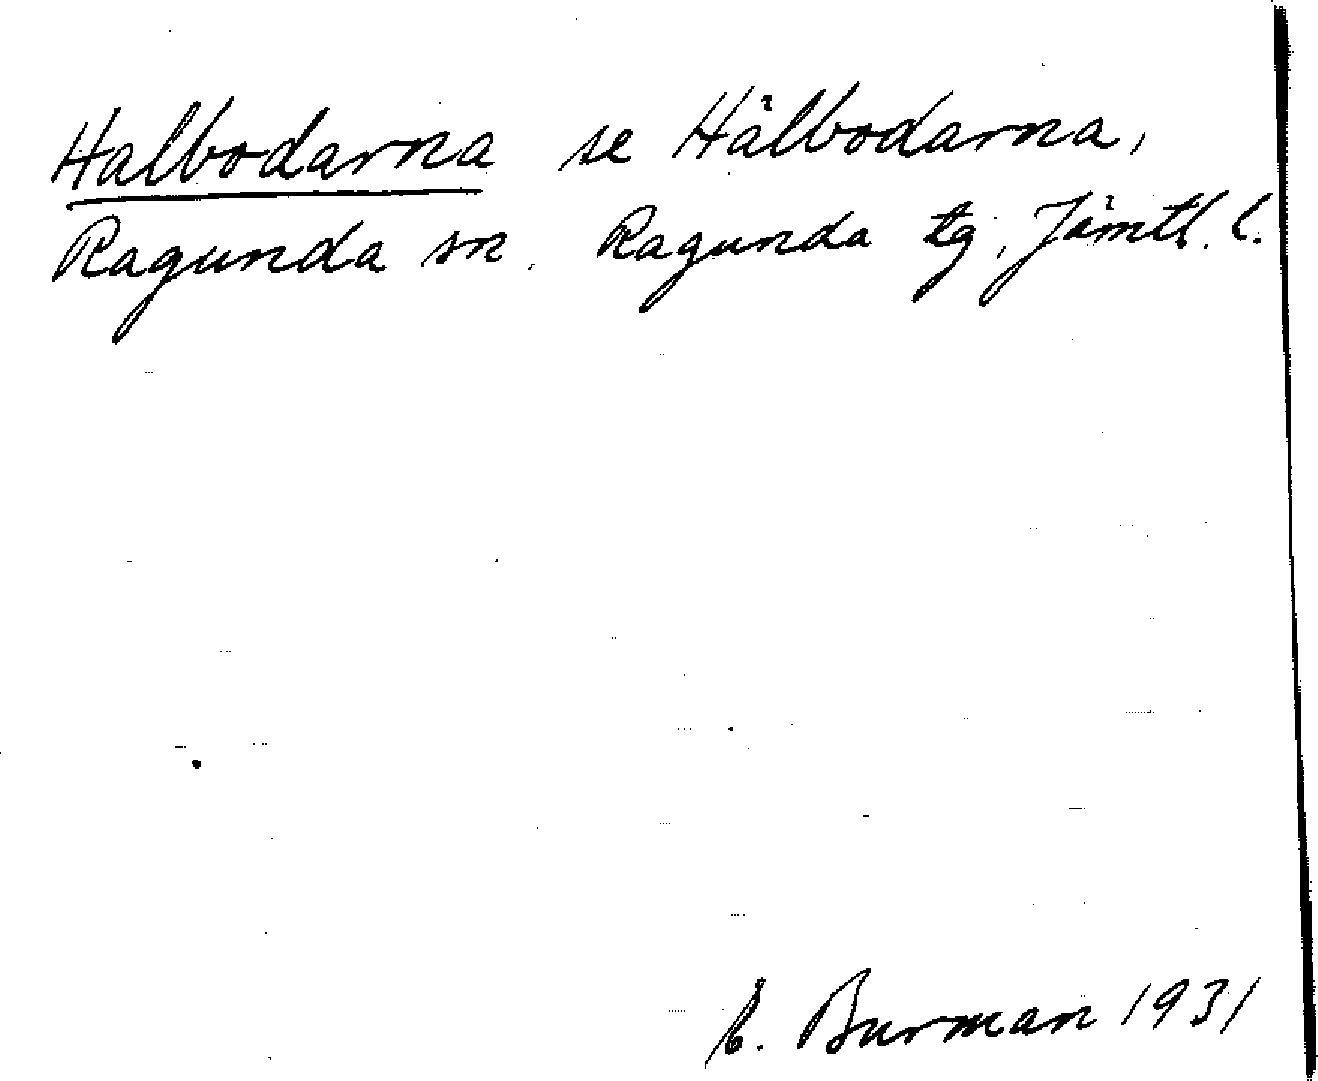 Halbodarna se Hälbodarna,
Ragunda sn. Ragunda tg, Jämtl. l.
Burman 1931